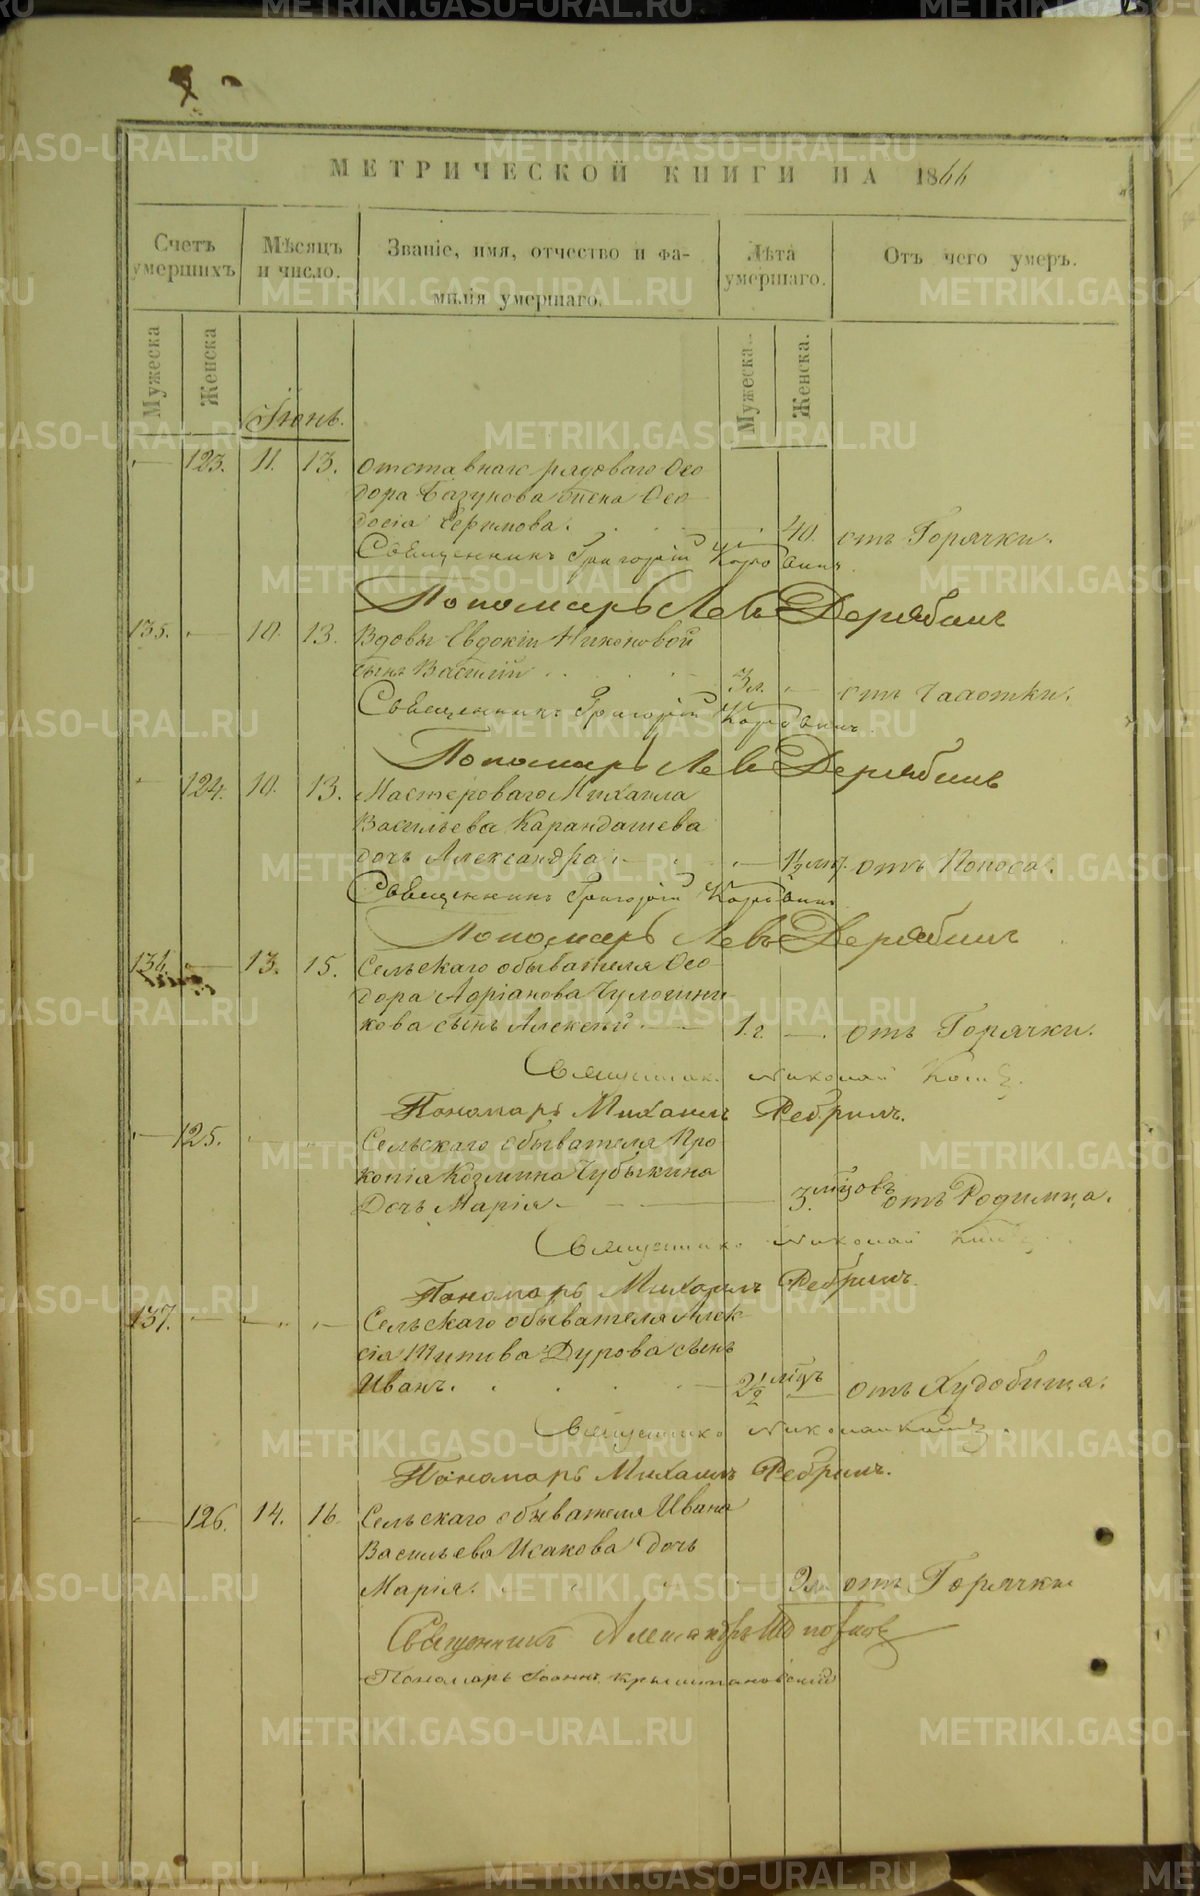 МЕТРИЧЕСКОЙ КНИГИ НА 1866
Счетъ умершихъ
Мѣсяцъ и число.
Званіе, имя, отчество и фамилія умершаго.
Лѣта умершаго.
Отъ чего умеръ.
Мужеска
Женска
Мужеска.
Женска.
Іюнь.
— 123. 11. 13. Отставнаго рядоваго Ѳео
дора Базунова жена Ѳео
досія Ефимова. — 40. отъ Горячки.
Священникъ Григорій
Пономарь Левъ Дерябинъ
135. — 10. 13. Вдовы Евдокіи Никоновой
сынъ Василій . . . 3 л. — отъ Чахотки.
Священникъ Григорій
Пономарь Левъ Дерябинъ
— 124. 10. 13. Мастероваго Михаила
Васильева Карандашева
дочь Александра — 1½ мц. отъ Поноса.
Священникъ Григорій
Пономарь Левъ Дерябинъ
136. — 13. 15. Сельскаго обывателя Ѳео
дора Адріанова
кова сынъ Алексѣй — 1 г. — отъ Горячки.
Священникъ Николай
Пономарь Михаилъ Ребринъ.
— 125. — „ Сельскаго обывателя Про
копія Козмина Чубыкина
Дочь Марія. — 3. мѣсцовъ отъ Родимца.
Священникъ Николай
Пономарь Михаилъ Ребринъ.
137. — — „ — Сельскаго обывателя Алек
сія Титова Дурова сынъ
Иванъ. . . . . — 2½ мѣсц — отъ Худобища.
Священникъ Николай
Пономарь Михаилъ Ребринъ.
— 126. 14. 16. Сельскаго обывателя Ивана
Васильева Исакова дочь
Марія. . . . . отъ Горячки
Священникъ Александръ
Пономарь Іоаннъ Крыштановскій
METRIKI.GASO-URAL.RU